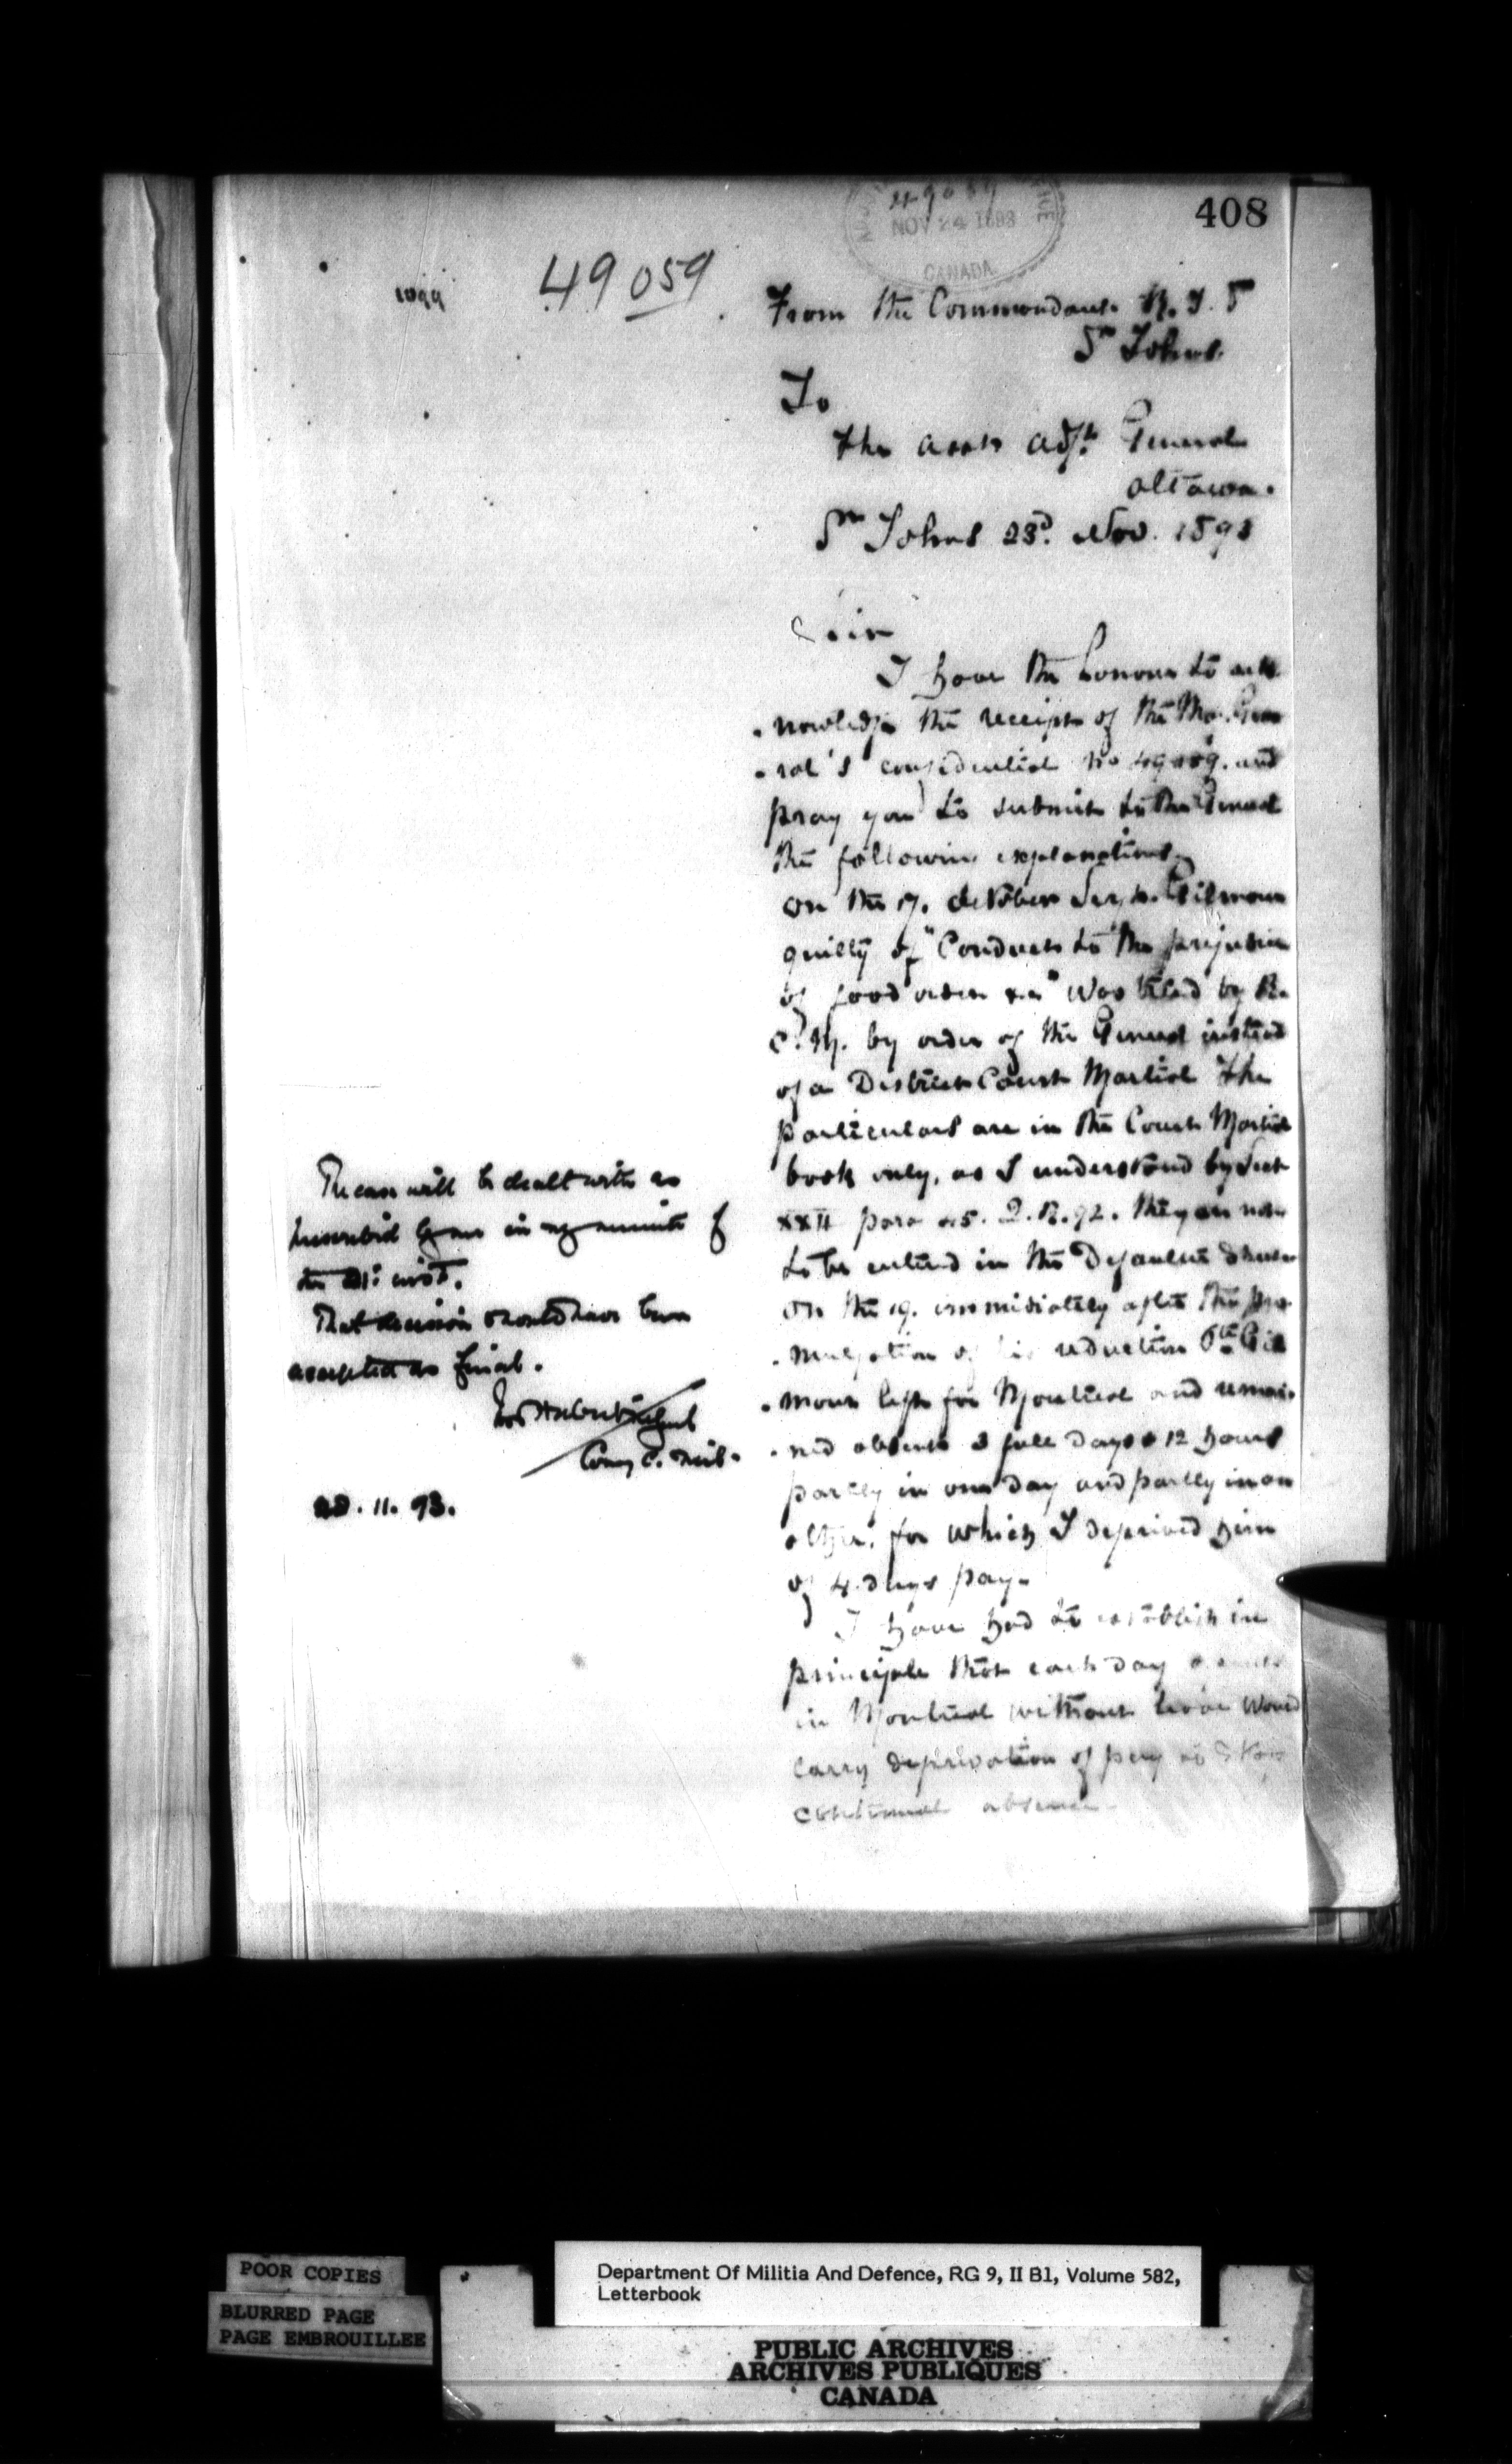 408
49059
NOV 24 1893
CANADA
49059
From the Commandant R. I. S
St Johns.
To
The asst adjt General
Ottawa.
St Johns 23d. Nov. 1893
Sir
I have the honour to ack
nowledge the receipt of the Ma. Gene
ral's confidential No 49059. and
pray you to submit to the General
the following explanations,
On the 17. October Serjt. Gilmour
guilty of "Conduct to the prejudice
of good order &a" Was tried by R.
C. M. by order of the General instead
of a District Court Martial The
particulars are in the Court Martial
book only, as I understand by Sect
XXII para 45. Q.R.92. they are not
to be entered in the Defaulter Sheet
On the 19. immidiately after the pro
mulgation of his reduction Pte Gil
mour left for Montreal and remai
ned absent 3 full days & 12 hours
partly in one day and partly in an
other, for which I deprived him
of 4 days pay.
I have had to establish in
principle that each day absence
in Montreal without leave Would
carry deprivation of pay to Stop
continual absence
The case will be dealt with as
prescribed by me in my minute of
the 21st inst.
That decision should have been
accepted as final.
Comg C. Mil.
11. 93.
POOR COPIES
BLURRED PAGE
PAGE EMBROUILLEE
Department Of Militia And Defence, RG 9, II B1, Volume 582,
Letterbook
PUBLIC ARCHIVES
ARCHIVES PUBLIQUES
CANADA